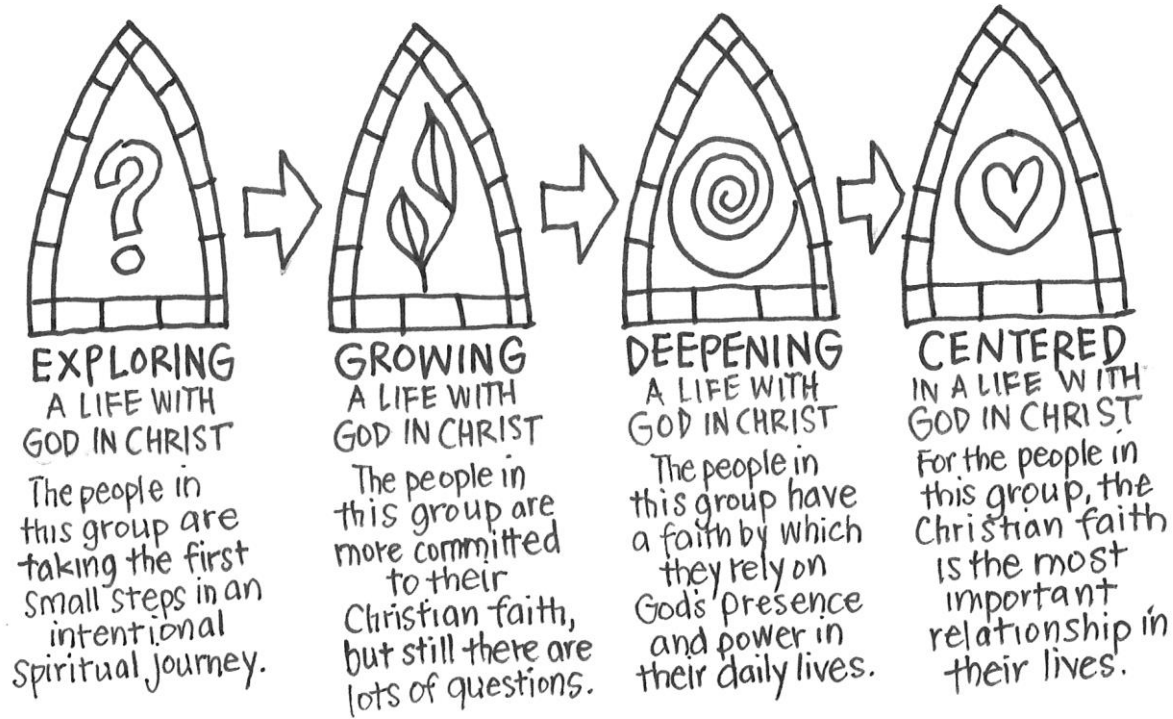 EXPLORING
A LIFE WITH
GOD IN CHRIST
The people in
this group are
taking the first
small steps in an
intentional
spiritual journey.
GROWING
A LIFE WITH
GOD IN CHRIST
The people in
this group are
more committed
to their
Christian faith,
but still there are
lots of questions.
DEEPENING
A LIFE WITH
GOD IN CHRIST
The people in
this group have
a faith by which
they rely on
God's presence
and power in
their daily lives.
CENTERED
IN A LIFE WITH
GOD IN CHRIST.
For the people in
this group, the
Christian faith
is the most
important
relationship in
their lives.